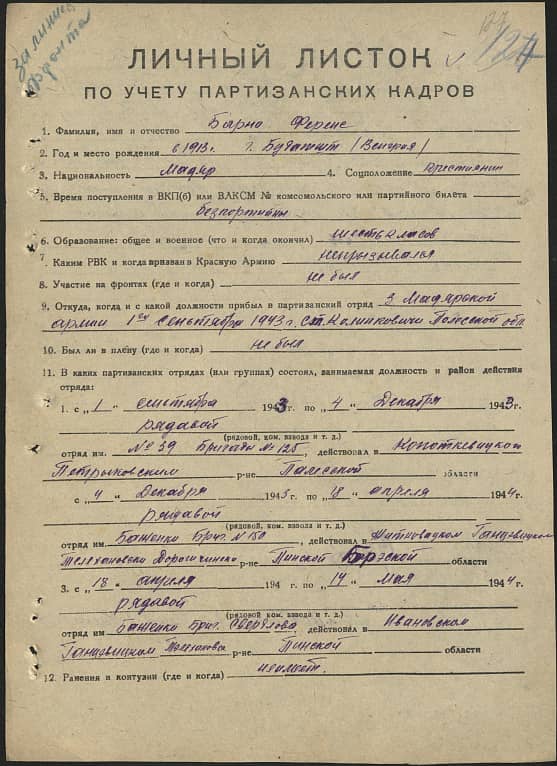 за линией
фронта
124
ЛИЧНЫЙ ЛИСТОК
ПО УЧЕТУ ПАРТИЗАНСКИХ КАДРОВ
1. Фамилия, имя и отчество Барна Ференс
2. Год и место рождения 1913 г. г. Будапешт (Венгрия)
3. Национальность Мадяр 4. Соцположение Крестиянин
5. Время поступления в ВКП(б) или ВЛКСМ № комсомольского или партийного билета
безпортийны
6. Образование: общее и военное (что и когда окончил) шесть класов
7. Каким РВК и когда призван в Красную Армию непризывался
8. Участие на фронтах (где и когда) не был
9. Откуда, когда и с какой должности прибыл в партизанский отряд З Мадярской
армии 1го сентября 1943 г. ст. Калинковичи Полесской обл.
10. Был ли в плену (где и когда) не был
11. В каких партизанских отрядах (или группах) состоял, занимаемая должность и район действия
отряда:
1. с „1" сентября 1943 г. по „4" Декабря 1943 г.
рядавой
(рядовой, ком. взвода и т. д.)
отряд им. № 39 Бригады № 125, действовал в Копоткевицком
Петрыковским р-не Полесской области
с „4" Декабря 1943 г. по „18" апреля 1944 г.
рядавой
(рядовой, ком. взвода и т. д.)
отряд им Баженко Бриг. № 150 действовал в Житковицком Ганцевицком
Телеханово Дорогичинско р-не Пинской Брэской области
3. с „18" апреля 194 г. по „14" мая 1944 г.
рядавой
(рядовой, ком. взвода и т. д.)
отряд им Баженко Бриг. Свердлова, действовал в Ивановском
Ганцевицком р-не Пинской области
12. Ранения и контузии (где и когда)